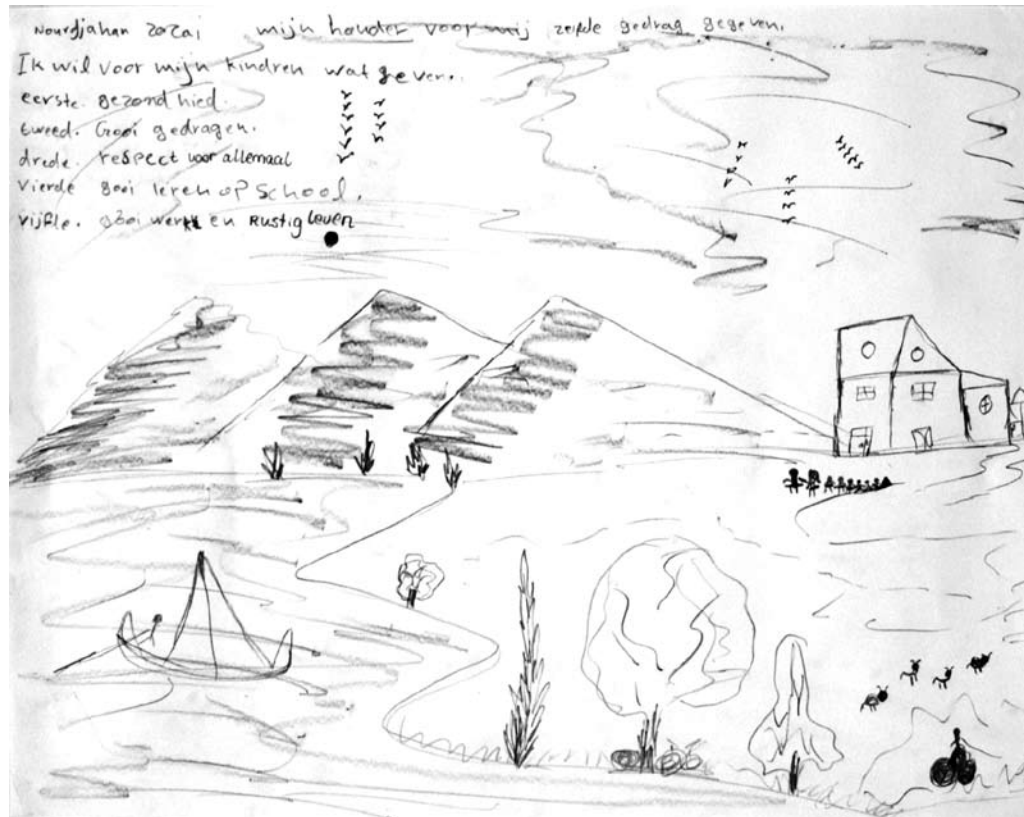 Nourdjahan zazai mijn houder voor mij zelfde gedrag gegeven.
Ik wil voor mijn kindren wat geven..
eerste. gezond hied.
tweed. Gooi gedragen.
drede. respect voor allemaal
vierde gooi leren op school.
vijfle. gooi werk en Rustig leven